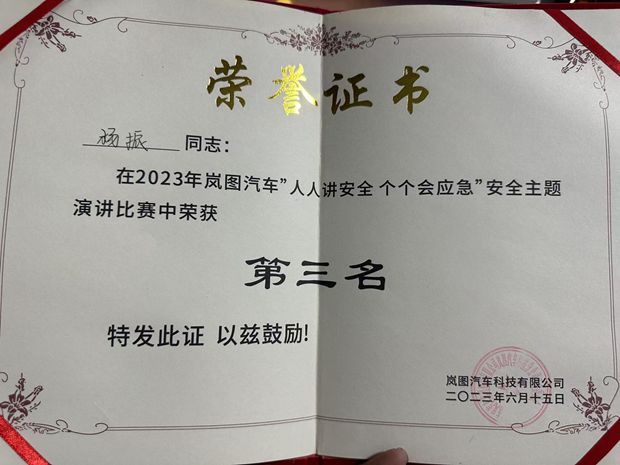 荣誉证书
杨振 同志：
在2023年岚图汽车”人人讲安全 个个会应急”安全主题
演讲比赛中荣获
第三名
特发此证 以兹鼓励!
岚图汽车科技有限公司
二〇二三年六月十五日